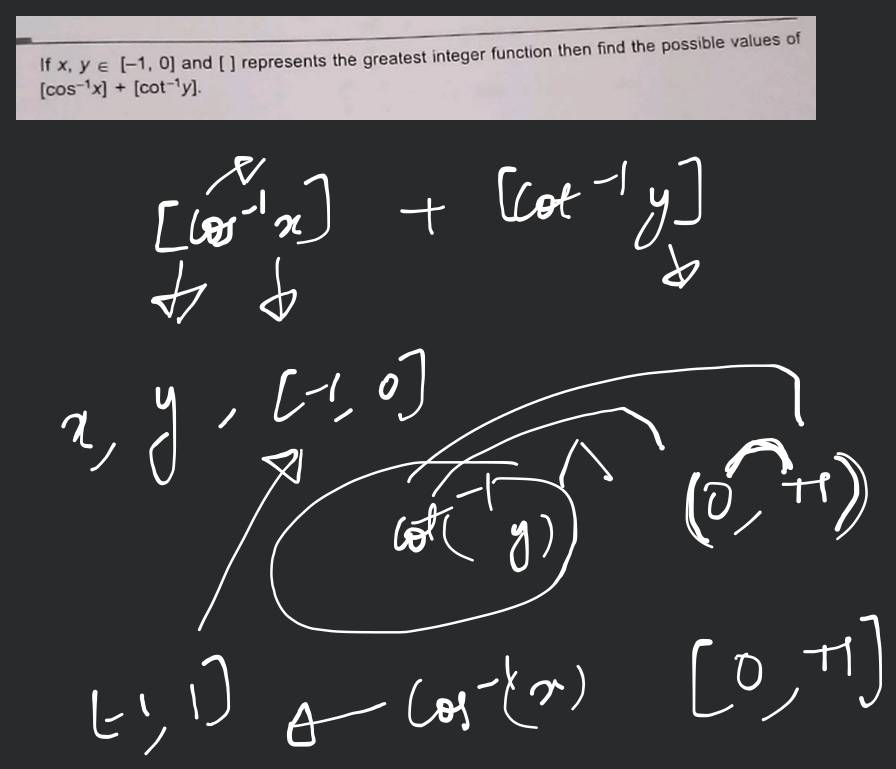 If x, y ∈ [–1, 0] and [ ] represents the greatest integer function then find the possible values of
[cos⁻¹x] + [cot⁻¹y].
[cos⁻¹x] + [cot⁻¹y]
x, y, [-1, 0]
cot⁻¹(y) (0, π)
[-1, 1] cos⁻¹(x) [0, π]